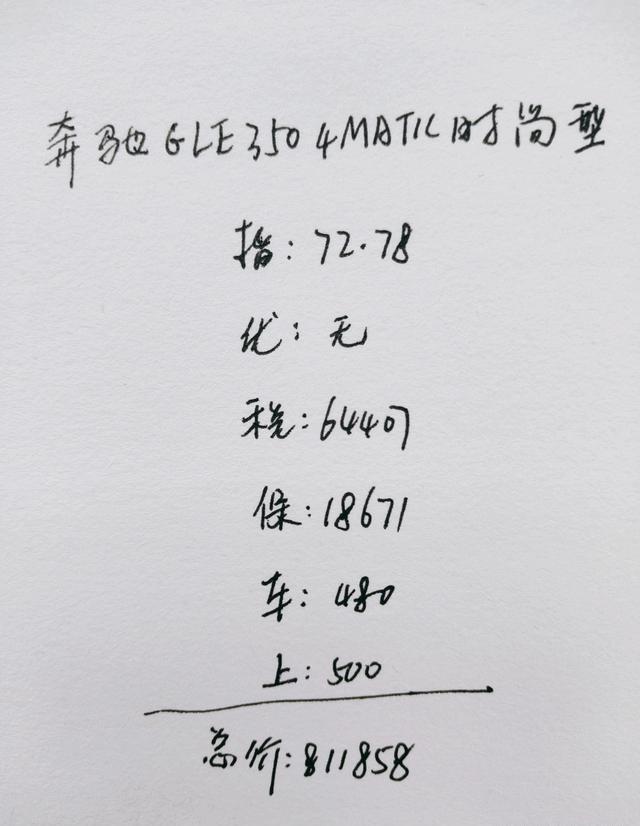 奔驰GLE350 4MATIC时尚型
指：72.78
优：无
税：64407
保：18671
车：480
上：500
总价：811858